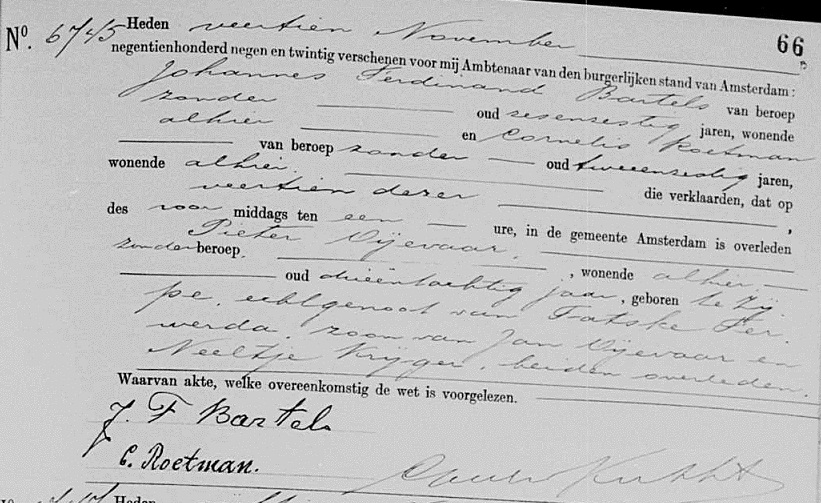 66
Nº. 6745 Heden veertien November
negentienhonderd negen en twintig verschenen voor mij Ambtenaar van den burgerlijken stand van Amsterdam:
Johannes Ferdinand Bartels van beroep
zonder oud zesenzestig jaren, wonende
alhier en Cornelis Roetman
van beroep zonder oud tweeenzestig jaren,
wonende alhier, die verklaarden, dat op
veertien dezer,
des voor middags ten een ure, in de gemeente Amsterdam is overleden
Pieter Vijevaar,
zonder beroep, wonende alhier,
oud drieëntachtig jaar, geboren te Zij
pe, echtgenoot van Tatske Fer-
werda, zoon van Jan Vijevaar en
Neeltje Krijger, beiden overleden.
Waarvan akte, welke overeenkomstig de wet is voorgelezen.
J. F Bartels
C. Roetman.
Heden